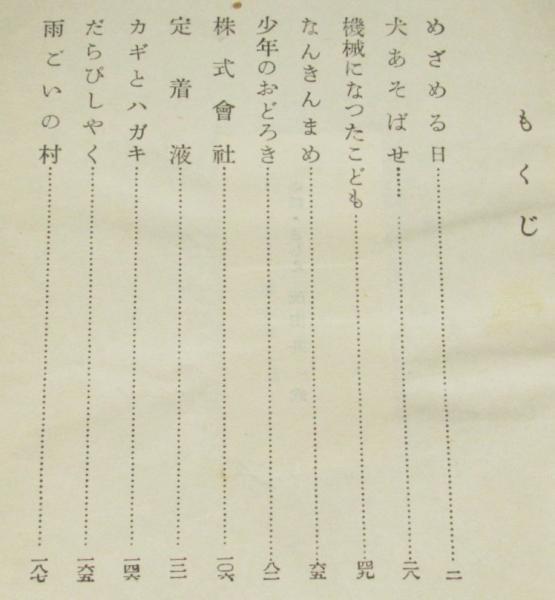 もくじ
めざめる日……二
犬あそばせ……二八
機械になつたこども……四九
なんきんまめ……六五
少年のおどろき……八二
株式會社……一〇六
定着液……一三一
カギとハガキ……一四六
だらびしやく……一六五
雨ごいの村……一八七